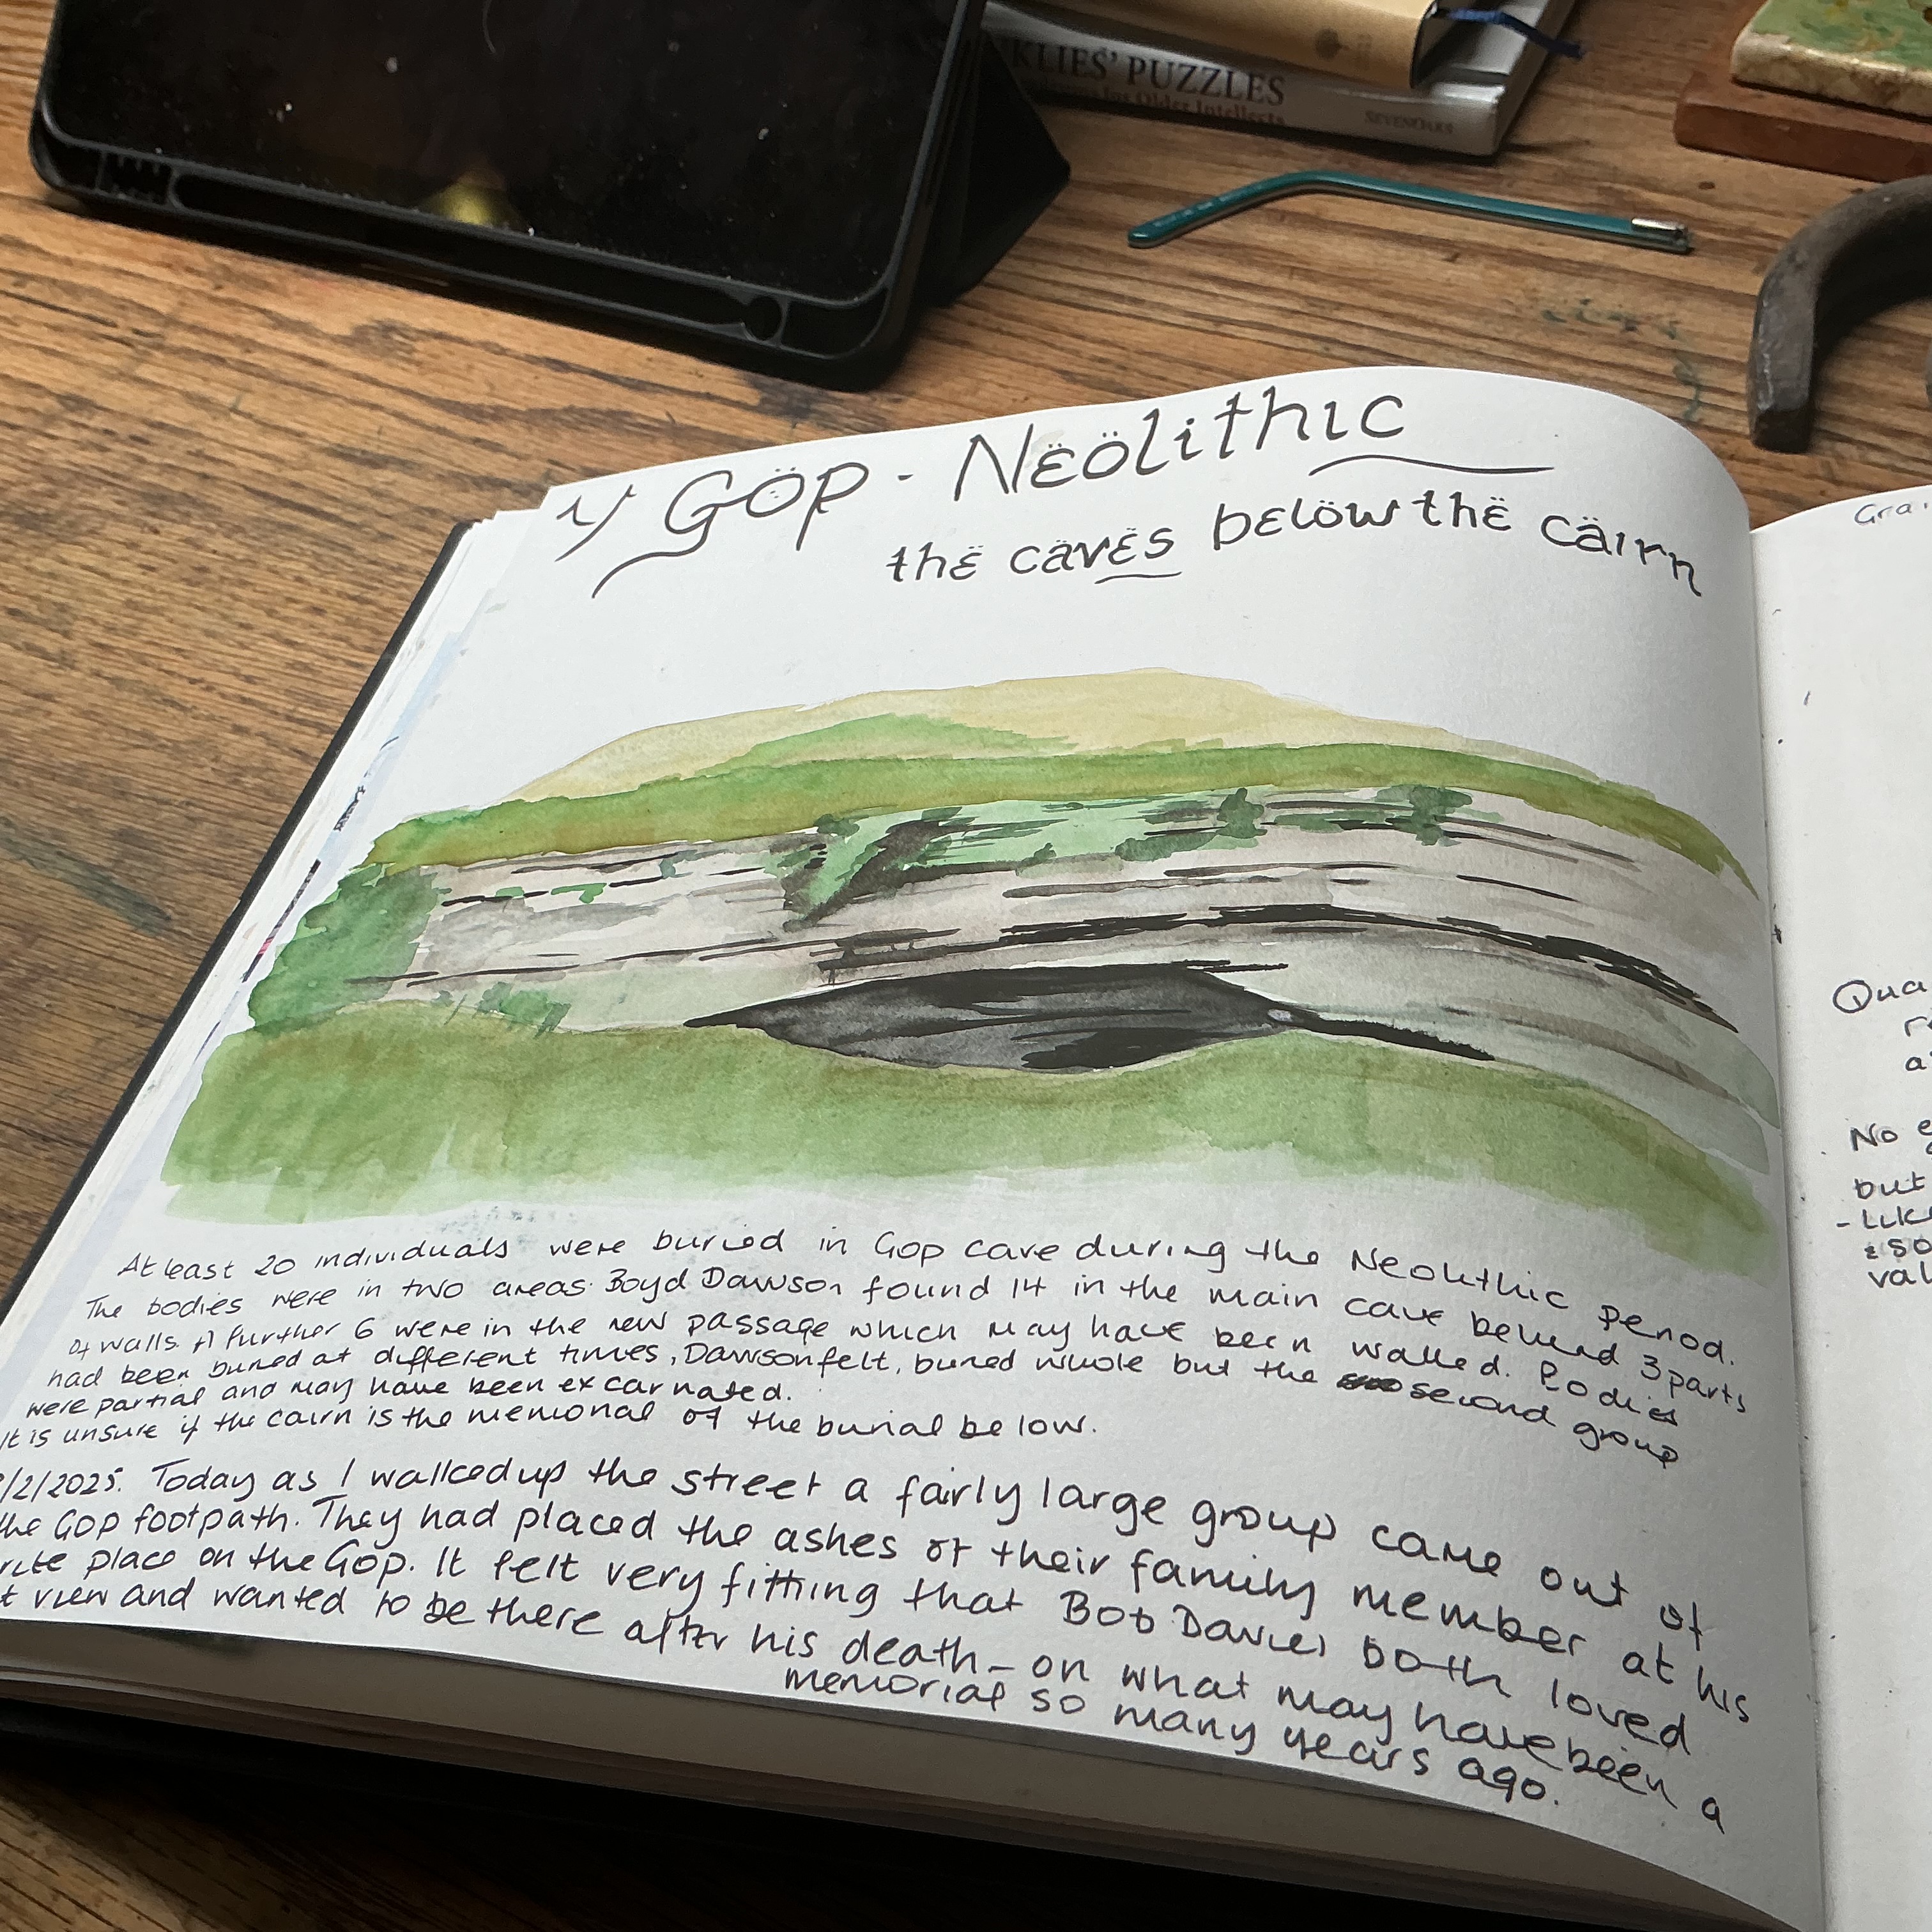 KLIES' PUZZLES
for Older Intellects
SEVENOAKS
Y Göp - Nëölithic
thë cävës bëlöw thë cäirn
At least 20 individuals were buried in Gop cave during the Neolithic period.
The bodies were in two areas. Boyd Dawson found 14 in the main cave behind 3 parts
of walls. A further 6 were in the new passage which may have been walled. Bodies
had been buried at different times, Dawson felt, buried whole but the second group
were partial and may have been excarnated.
It is unsure if the cairn is the memorial of the burial below.
/2/2025. Today as I walked up the street a fairly large group came out of
the Gop footpath. They had placed the ashes of their family member at his
rite place on the Gop. It felt very fitting that Bob Davies both loved
t view and wanted to be there after his death - on what may have been a
memorial so many years ago.
Gra
Qua
r
a
No e
but
- Like
& so
val